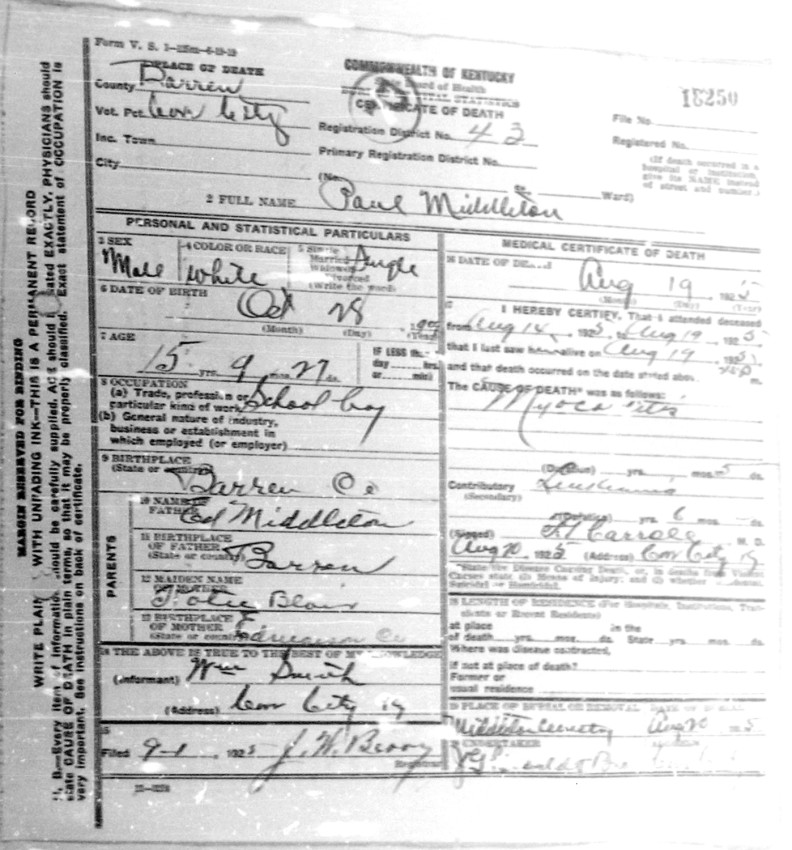 Form V. S. 1
PLACE OF DEATH
County Barren
Vot. Pct. Cave City
Inc. Town
City
COMMONWEALTH OF KENTUCKY
of Health
VITAL STATISTICS
CERTIFICATE OF DEATH
Registration District No. 43
Primary Registration District No.
(No. Ward)
18250
File No.
Registered No.
(If death occurred in a
hospital or institution,
give its NAME instead
of street and number.)
2 FULL NAME Paul Middleton
PERSONAL AND STATISTICAL PARTICULARS
3 SEX Male
4 COLOR OR RACE white
5 Single
Married
Widowed
(Write the word) Single
6 DATE OF BIRTH Oct 28
(Month) (Day) (Year)
7 AGE 15 yrs. 9 mos. 27 ds.
IF LESS
day hrs.
or min.
8 OCCUPATION
(a) Trade, profession or
particular kind of work School boy
(b) General nature of industry,
business or establishment in
which employed (or employer)
9 BIRTHPLACE
(State or country) Barren Co
PARENTS
10 NAME OF
FATHER Ed Middleton
11 BIRTHPLACE
OF FATHER
(State or country) Barren
12 MAIDEN NAME
OF MOTHER Blair
13 BIRTHPLACE
OF MOTHER
(State or country) Co
14 THE ABOVE IS TRUE TO THE BEST OF MY KNOWLEDGE
(Informant) Wm Smith
(Address) Cave City Ky
15
Filed 9-1, 1925 J. W. Berry
Registrar
MEDICAL CERTIFICATE OF DEATH
16 DATE OF DEATH Aug 19 1925
(Month) (Day) (Year)
17 I HEREBY CERTIFY, That I attended deceased
from Aug 14, 1925, to Aug 19, 1925
that I last saw alive on Aug 19, 1925,
and that death occurred on the date stated above m.
The CAUSE OF DEATH was as follows:
(Duration) yrs. mos. 5 ds.
Contributory
(Secondary)
(Duration) yrs. 6 mos. ds.
(Signed) Carroll M. D.
Aug 20, 1925 (Address) Cave City Ky
State the Disease Causing Death, or, in deaths from Violent
Causes state (1) Means of Injury; and (2) whether
Suicidal or Homicidal.
18 LENGTH OF RESIDENCE (For Hospitals, Institutions, Transients
or Recent Residents)
At place In the
of death yrs. mos. ds. State yrs. mos. ds.
Where was disease contracted,
if not at place of death?
Former or
usual residence
19 PLACE OF BURIAL OR REMOVAL DATE OF BURIAL
Middleton Cemetery Aug 20 1925
20 UNDERTAKER
MARGIN RESERVED FOR BINDING
WRITE PLAINLY WITH UNFADING INK—THIS IS A PERMANENT RECORD
N. B.—Every item of information should be carefully supplied. AGE should be stated EXACTLY. PHYSICIANS should
state CAUSE OF DEATH in plain terms, so that it may be properly classified. Exact statement of OCCUPATION is
very important. See instructions on back of certificate.